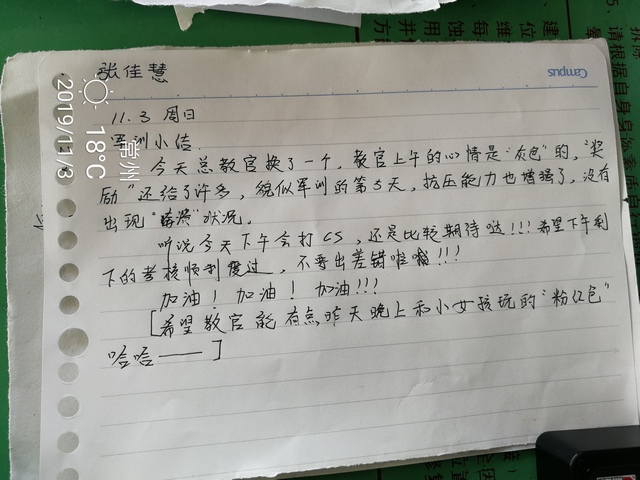 张佳慧
Campus
11.3 周日
军训小结.
今天总教官换了一个，教官上午的心情是“灰色”的，“奖
励”还给了许多，貌似军训的第5天，抗压能力也增强了，没有
出现 状况。
听说今天下午会打CS，还是比较期待哒！！！希望下午剩
下的考核顺利度过，不要出差错啦 ！！！
加油！加油！加油！！！
[希望教官能有点昨天晚上和小女孩玩的“粉红色”
哈哈——]
2019/11/3
18°C
常州